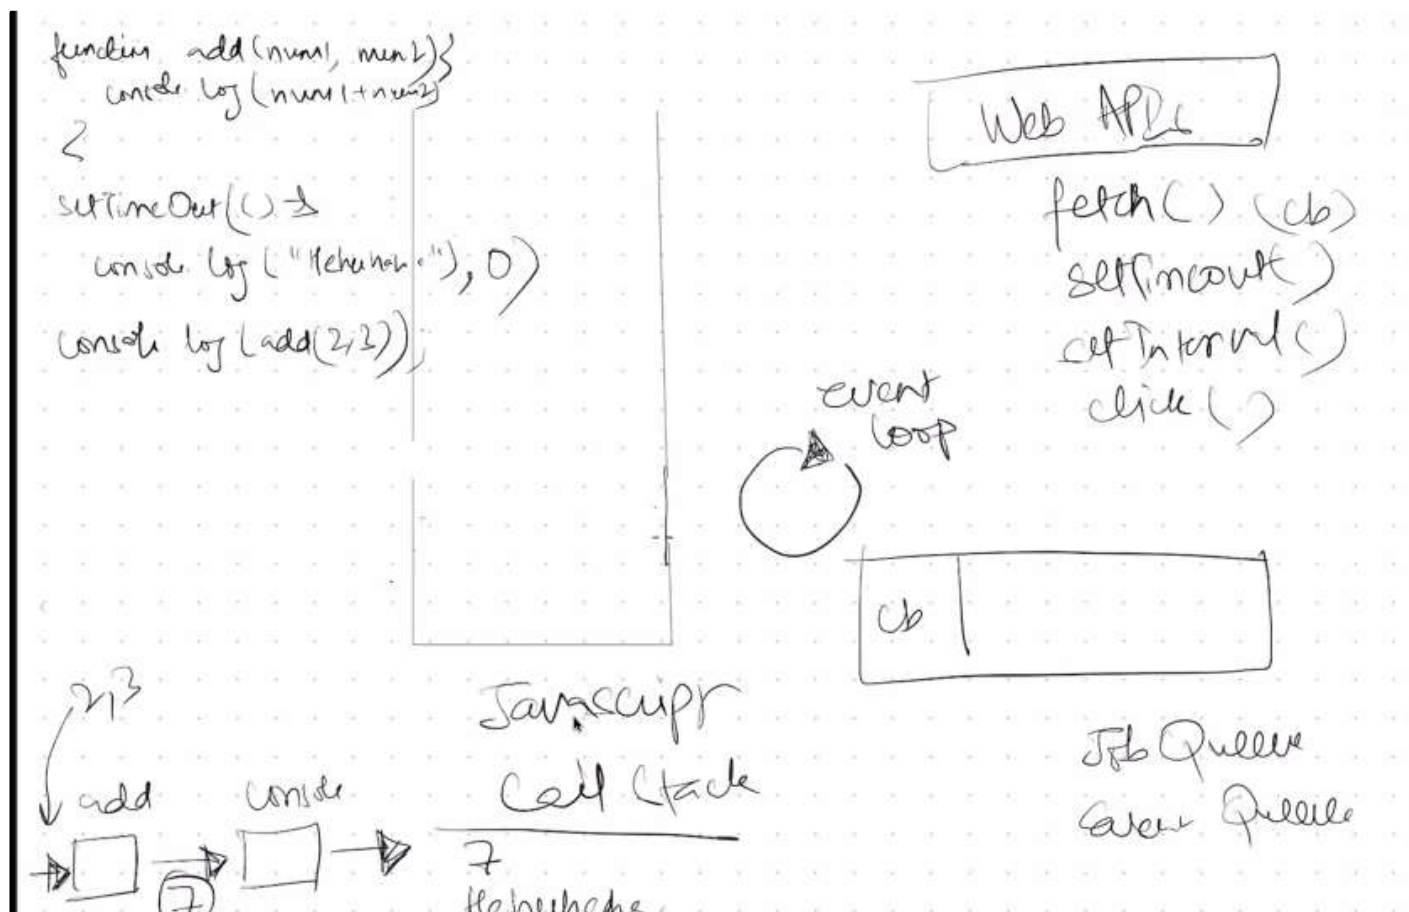 function add(num1, num2){
console.log(num1+num2)
}
setTimeOut(() →
console.log("Hehehaha"), 0)
console log (add(2,3)),
Web APIs
fetch() (cb)
setTimeout()
setInterval()
click()
event
loop
cb
Job Queue
Queue
Javascript
Call Stack
7
2,3
add console
7